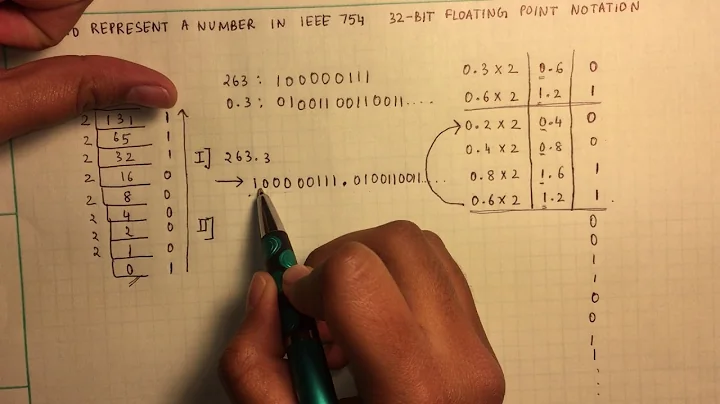 REPRESENT A NUMBER IN IEEE 754 32-BIT FLOATING POINT NOTATION
263 : 100000111
0.3 : 010011 00110011....
2 131 1
2 65 1
2 32 1
2 16 0
2 8 0
2 4 0
2 2 0
2 1 0
0 1
I] 263.3
→ 100000111.0100110011....
II]
0.3 × 2 0.6 0
0.6 × 2 1.2 1
0.2 × 2 0.4 0
0.4 × 2 0.8 0
0.8 × 2 1.6 1
0.6 × 2 1.2 1
0
0
1
1
0
0
1
1